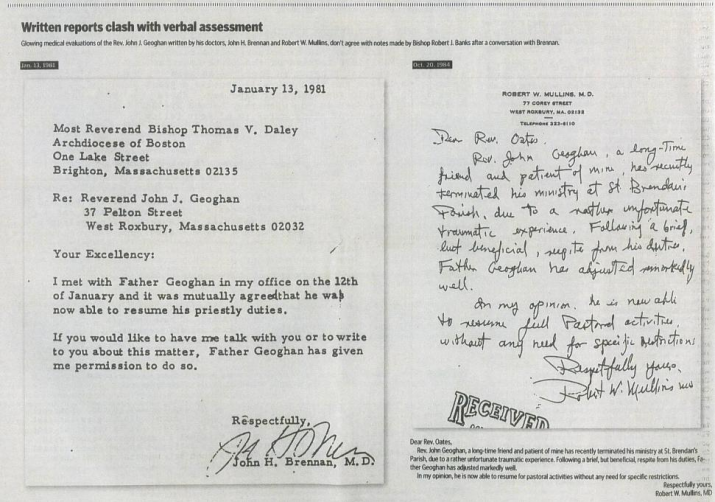 Written reports clash with verbal assessment
Glowing medical evaluations of the Rev. John J. Geoghan written by his doctors, John H. Brennan and Robert W. Mullins, don't agree with notes made by Bishop Robert J. Banks after a conversation with Brennan.
Jan. 13, 1981
January 13, 1981
Most Reverend Bishop Thomas V. Daley
Archdiocese of Boston
One Lake Street
Brighton, Massachusetts 02135
Re: Reverend John J. Geoghan
37 Pelton Street
West Roxbury, Massachusetts 02032
Your Excellency:
I met with Father Geoghan in my office on the 12th
of January and it was mutually agreed that he was
now able to resume his priestly duties.
If you would like to have me talk with you or to write
to you about this matter, Father Geoghan has given
me permission to do so.
Respectfully,
John H. Brennan, M.D.
Oct. 20, 1984
ROBERT W. MULLINS, M. D.
77 COREY STREET
WEST ROXBURY, MA. 02132
TELEPHONE 323-6110
Dear Rev. Oates.
Rev. John Geoghan, a long-time
friend and patient of mine, has recently
terminated his ministry at St Brendan's
Parish, due to a rather unfortunate
traumatic experience. Following a brief,
but beneficial, respite from his duties,
Father Geoghan has adjusted remarkedly
well.
In my opinion, he is now able
to resume full Pastoral activities,
without any need for specific restrictions
Respectfully yours,
Robert W. Mullins MD
RECEIVED
Dear Rev. Oates,
Rev. John Geoghan, a long-time friend and patient of mine has recently terminated his ministry at St. Brendan's
Parish, due to a rather unfortunate traumatic experience. Following a brief, but beneficial, respite from his duties, Fa-
ther Geoghan has adjusted markedly well.
In my opinion, he is now able to resume for pastoral activities without any need for specific restrictions.
Respectfully yours,
Robert W. Mullins, MD